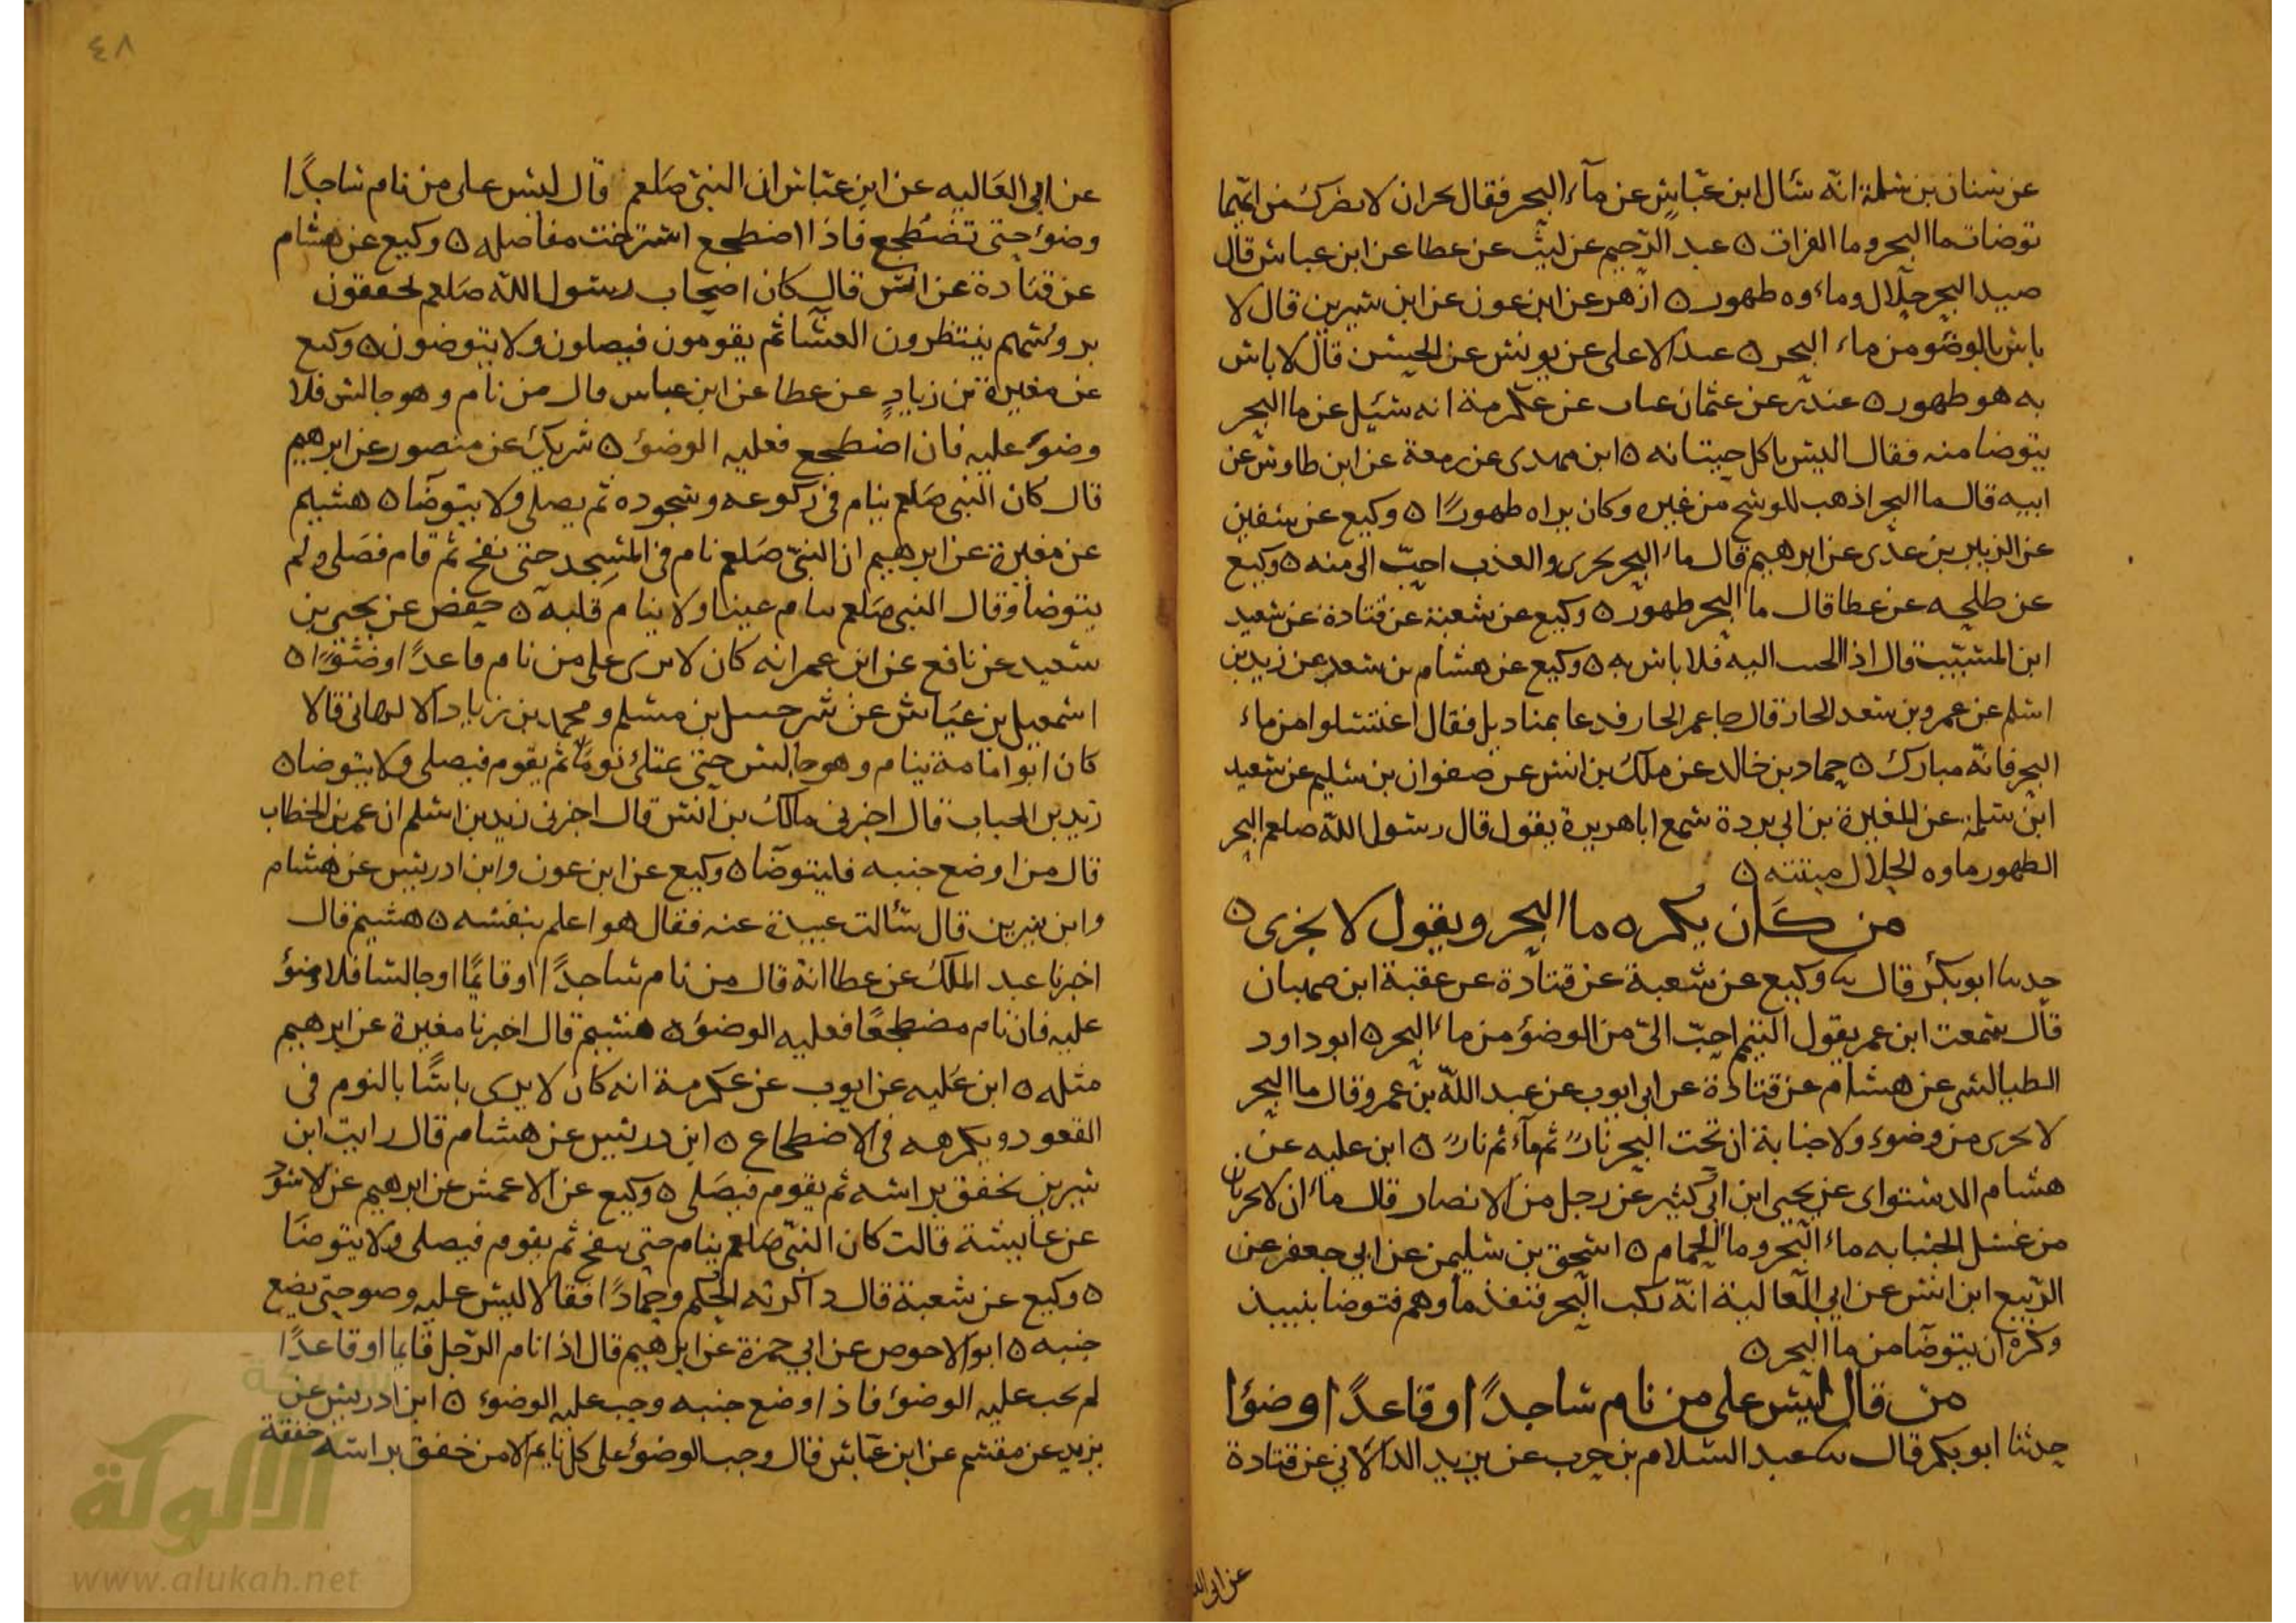 عن سنان بن سلمة انه سال ابن عباس عن ماء البحر فقال بحران لا يضرك من ايهما
توضات ما البحر وما الفرات ه عبد الرحيم عن ليث عن عطا عن ابن عباس قال
صيد البحر حلال وماءوه طهور ه ازهر عن ابن عون عن ابن سيرين قال لا
باس بالوضوء من ماء البحر ه عبد الاعلى عن يونس عن الحسن قال لا باس
به هو طهور ه غندر عن عثمان عن عكرمة انه سئل عن ما البحر
يتوضا منه فقال اليس ياكل حيتانه ه ابن مهدى عن زمعة عن ابن طاوس عن
ابيه قال ما البحر اذهب للوسخ من غيره وكان يراه طهورًا ه وكيع عن سفين
عن الزبير بن عدى عن ابرهيم قال ماء البحر يجزى والعذب احبّ الى منه ه وكيع
عن طلحه عن عطا قال ما البحر طهور ه وكيع عن شعبة عن قتادة عن سعيد
ابن المسيّب قال اذا الجيت اليه فلا باس به ه وكيع عن هشام بن سعد عن زيد بن
اسلم عن عمرو بن سعد الجار قال جا عمر الجار فدعا بمناديل فقال اغتسلوا من ماء
البحر فانّه مبارك ه حماد بن خالد عن ملك بن انس عن صفوان بن سليم عن سعيد
ابن سلمة عن المغيرة بن ابي بردة سمع ابا هريرة يقول قال رسول الله صلعم البحر
الطهور ماوه الحلال ميتته ه
من كان يكره ما البحر ويقول لا يجزى ه
حدثنا ابو بكر قال نا وكيع عن شعبة عن قتادة عن عقبة ابن صهبان
قال سمعت ابن عمر يقول التيمم احبّ الىّ من الوضوء من ماء البحر ه ابو داود
الطيالسى عن هشام عن قتادة عن ابى ايوب عن عبد الله بن عمرو قال ما البحر
لا يجزى من وضوء ولا جنابة ان تحت البحر نارً ثم ماء ثم نارً ه ابن عليه عن
هشام الدستواى عن يحيى ابن ابي كثير عن رجل من الانصار قال ماءان لا يجزيان
من غسل الجنابه ماء البحر وماء الحمام ه اسحق بن سليمن عن ابي جعفر عن
الربيع ابن انس عن ابي العالية انّه ركب البحر فنفذ ماوهم فتوضا بنبيذ
وكره ان يتوضا من ما البحر ه
من قال ليس على من نام ساجدًا او قاعدًا وضوًا
حدثنا ابو بكر قال نا عبد السلام بن حرب عن يزيد الدالانى عن قتادة
عن ابي العا
٤٨
عن ابي العاليه عن ابن عباس ان النبى صلعم قال ليس على من نام ساجدًا
وضوء حتى تضطجع فاذا اضطجع استرخت مفاصله ه وكيع عن هشام
عن قتادة عن انس قال كان اصحاب رسول الله صلعم يخفقون
بروسهم ينتظرون العشا ثم يقومون فيصلون ولا يتوضون ه وكيع
عن مغيرة بن زيادٍ عن عطا عن ابن عباس قال من نام وهو جالس فلا
وضوء عليه فان اضطجع فعليه الوضوء ه شريك عن منصور عن ابرهيم
قال كان النبى صلعم ينام فى ركوعه وسجوده ثم يصلى ولا يتوضا ه هشيم
عن مغيرة عن ابرهيم ان النبىّ صلعم نام فى المسجد حتى نفخ ثم قام فصلى ولم
يتوضا وقال النبى صلعم تنام عينا ولا ينام قلبه ه حفص عن يحيى بن
سعيد عن نافع عن ابن عمر انه كان لا يرى على من نام قاعدًا وضوًا ه
اسمعيل بن عياش عن شرحبيل بن مسلم ومحمد بن زياد الالهانى قالا
كان ابو امامة ينام وهو جالس حتى يمتلئ نومًا ثم يقوم فيصلى ولا يتوضا ه
زيد بن الحباب قال اخبرنى مالك بن انس قال اخبرنى زيد بن اسلم ان عمر بن الخطاب
قال من اوضع جنبه فليتوضا ه وكيع عن ابن عون وابن ادريس عن هشام
وابن سيرين قال سالت عبيدة عنه فقال هو اعلم بنفسه ه هشيم قال
اخبرنا عبد الملك عن عطا انه قال من نام ساجدًا او قائمًا او جالسا فلا وضوء
عليه فان نام مضطجعًا فعليه الوضوء ه هشيم قال اخبرنا مغيرة عن ابرهيم
مثله ه ابن عليه عن ايوب عن عكرمة انه كان لا يرى باسًا بالنوم فى
القعود ويكرهه فى الاضطجاع ه ابن ادريس عن هشام قال رايت ابن
سيرين يخفق براسه ثم يقوم فيصلى ه وكيع عن الاعمش عن ابرهيم عن الاسود
عن عايشة قالت كان النبىّ صلعم ينام حتى ينفخ ثم يقوم فيصلى ولا يتوضا
ه وكيع عن شعبة قال ذاكرته الحكم وحمادًا فقالا ليس عليه وضو حتى يضع
جنبه ه ابو الاحوص عن ابي حمزة عن ابرهيم قال اذا نام الرّجل قايما او قاعدًا
لم يجب عليه الوضوء فاذا وضع جنبه وجب عليه الوضوء ه ابن ادريس عن
يزيد عن مقسم عن ابن عباس قال وجب الوضوء على كل نايم الا من خفق براسه خفقة
شبكة
الألوكة
www.alukah.net